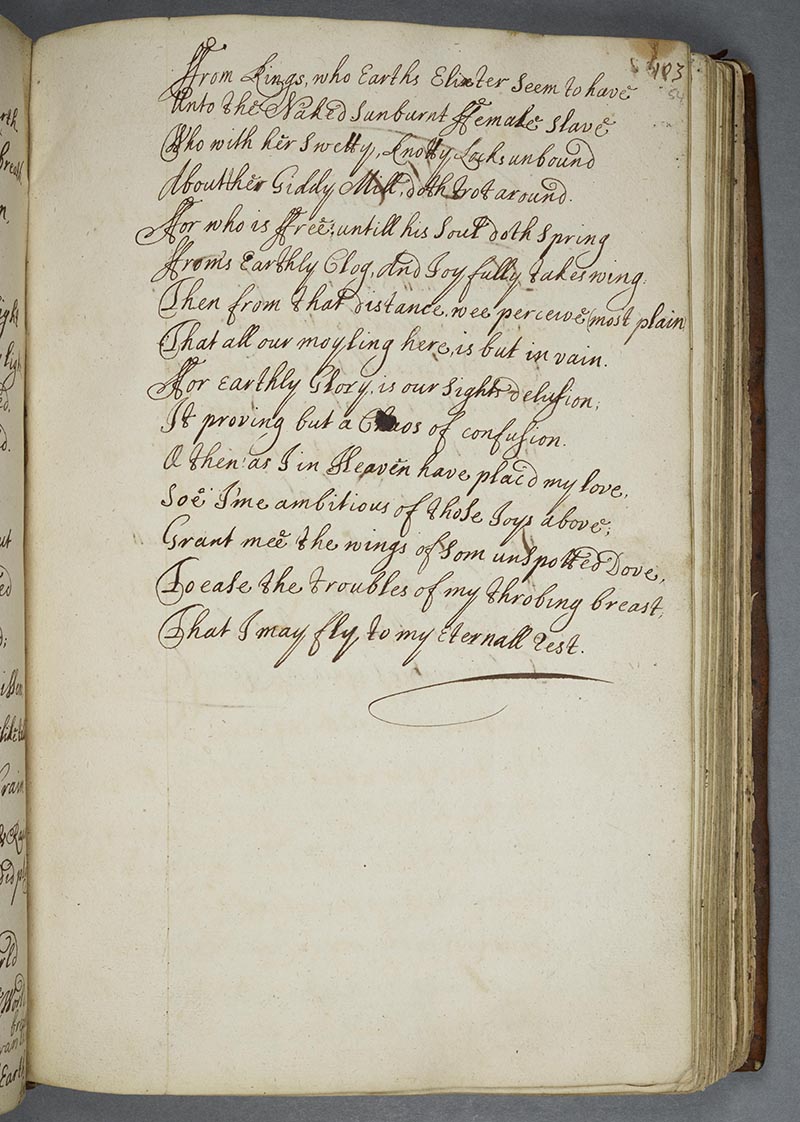 103
54
ffrom Kings, who Earths Elixter Seem to have
Unto the Naked Sunburnt ffemale Slave
Who with her Swetty, knotty Locks unbound
About her Giddy Mill, doth trot around.
ffor who is ffree; untill his Soul doth Spring
ffrom's Earthly Clog, and Joyfully takes wing;
Then from that distance, wee perceive (most plain)
That all our moyling here, is but in vain.
ffor Earthly Glory, is our Sights delusion;
It proving but a Chaos of confusion.
O then as I in Heaven have plac'd my love,
Soe I'me ambitious of those Joys above;
Grant mee the wings of Som unspotted Dove,
To ease the troubles of my throbing breast,
That I may fly, to my Eternall Rest.